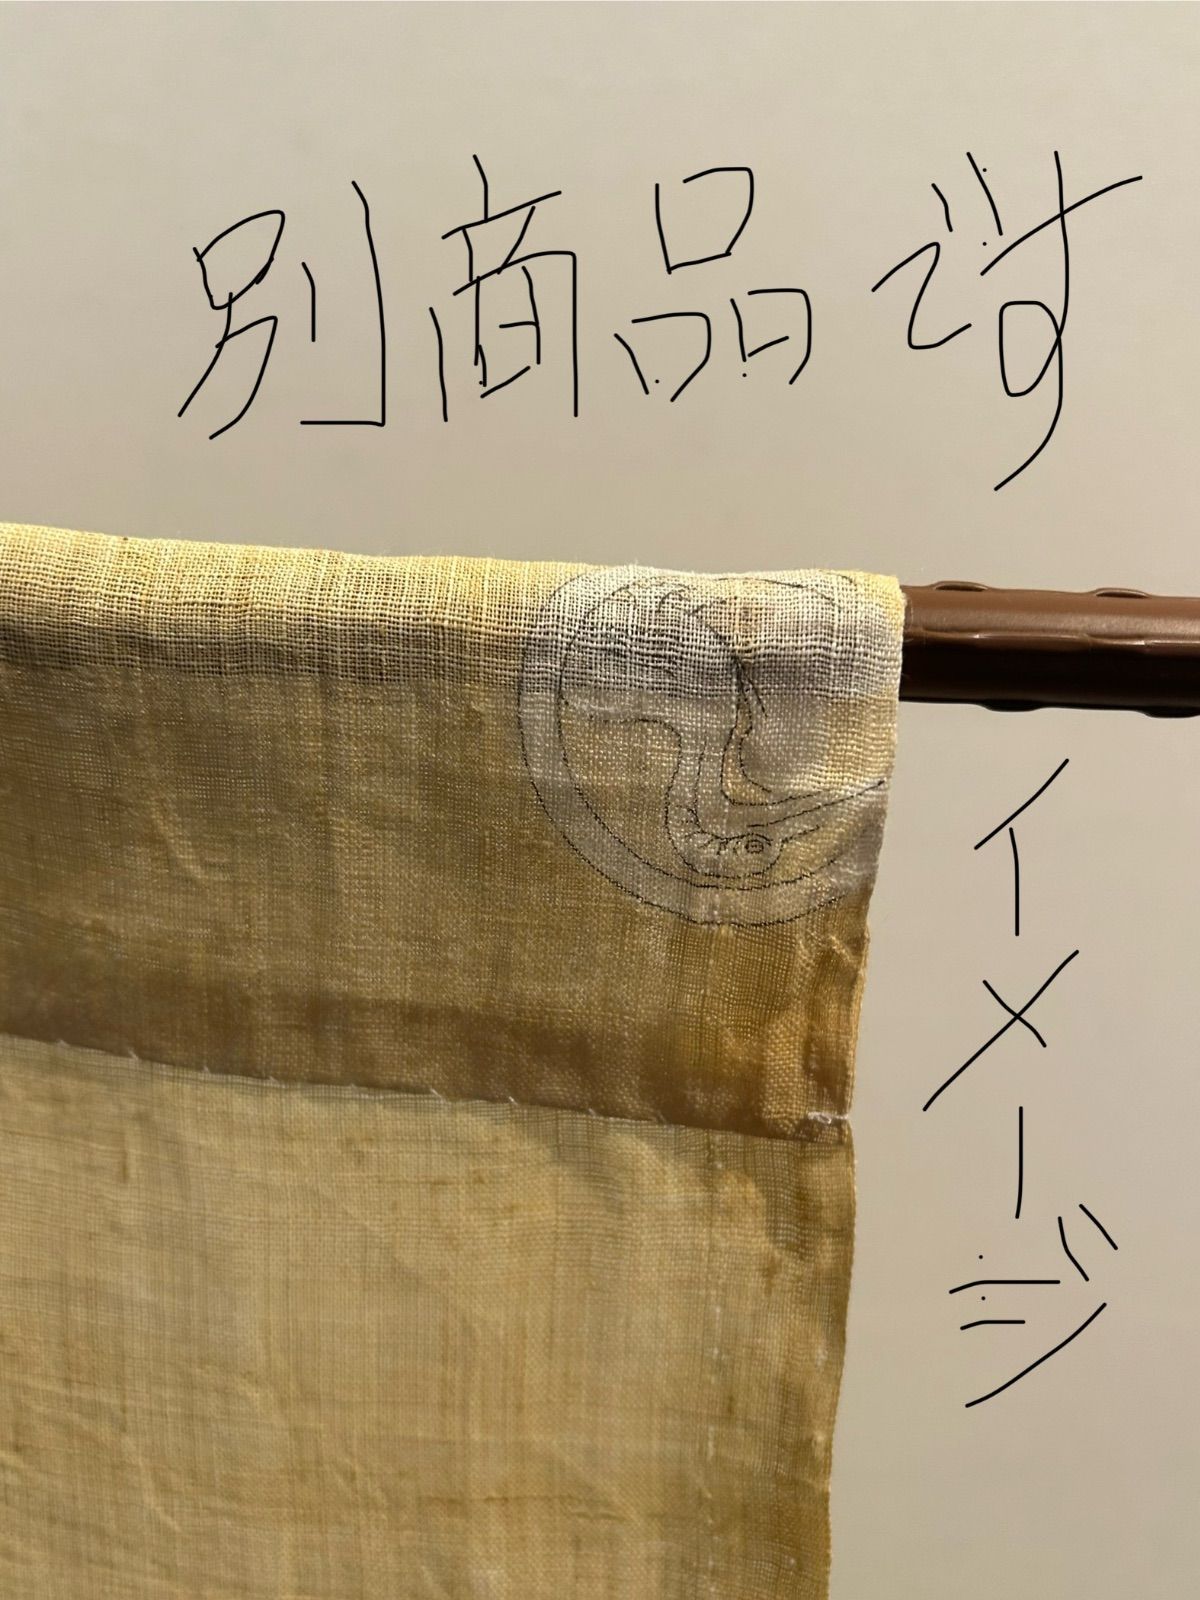 別商品です
イメージ